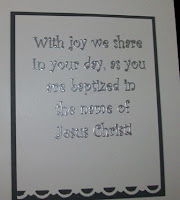 With joy we share
In your day, as you
are baptized in
the name of
Jesus Christ!